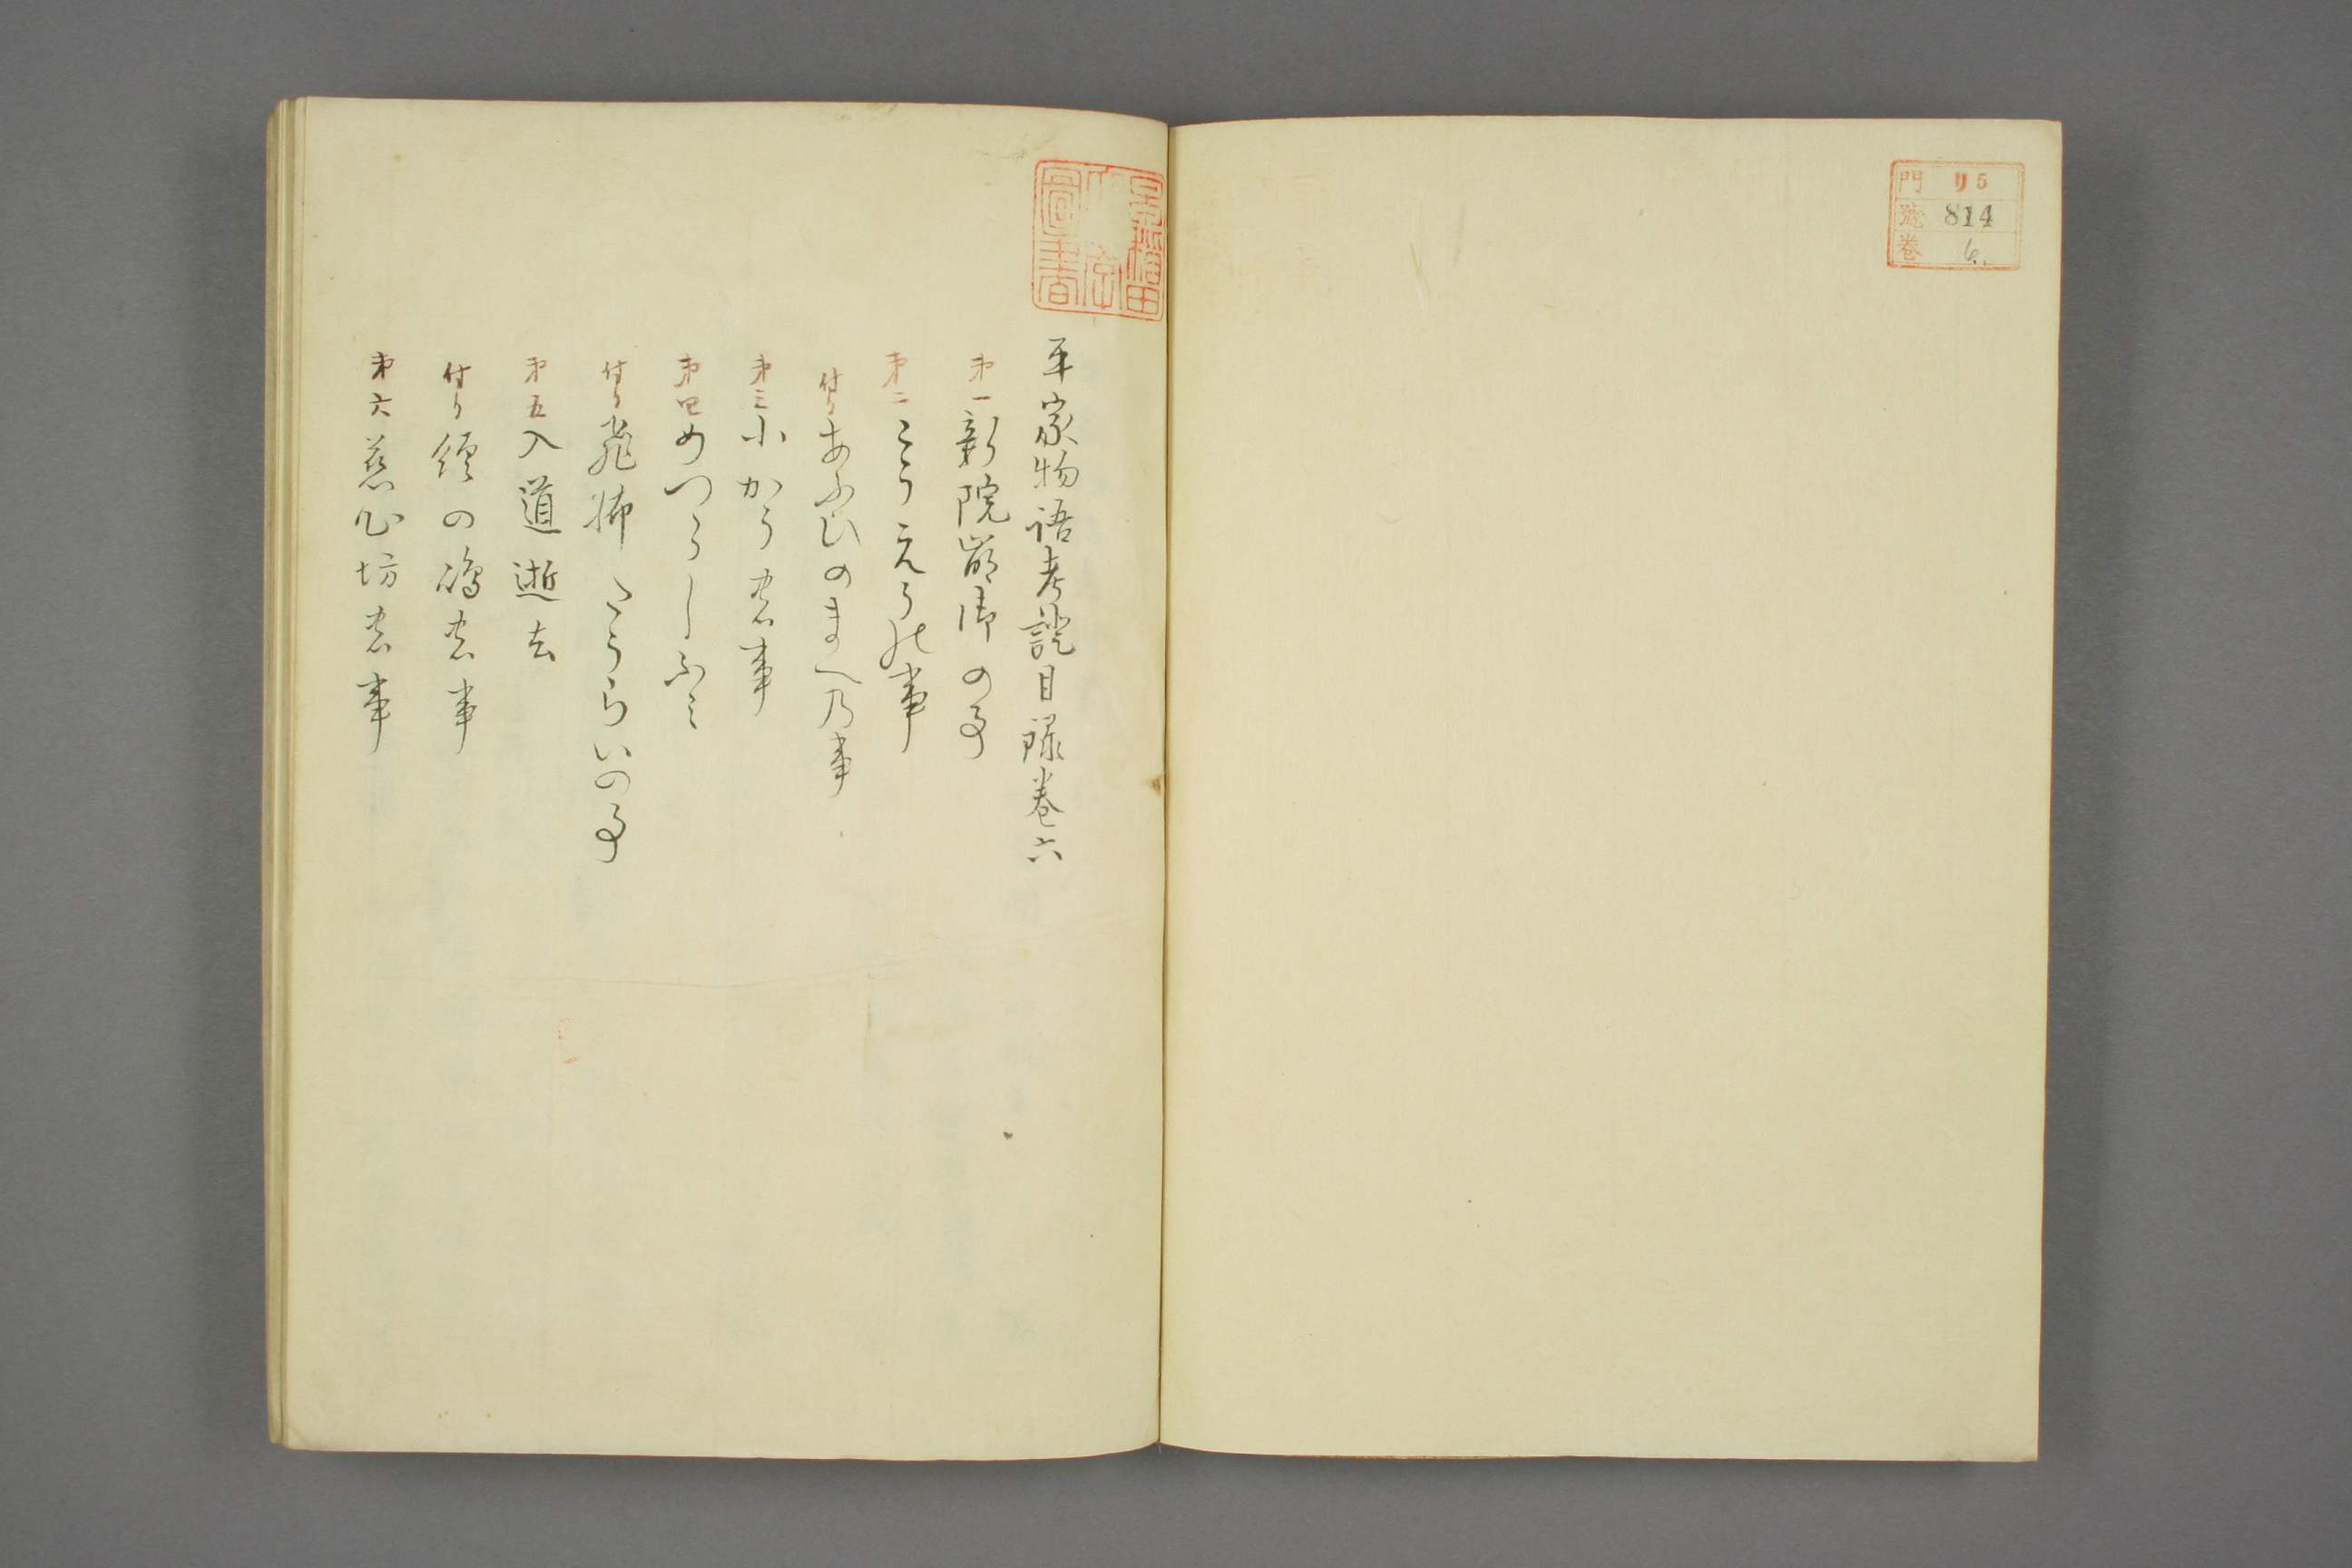 門 リ5
號 814
巻 6.
早稲田
圖書
平家物語考證目録巻六
第一 新院崩御の事
第二 こうえうの事
付り あふひのまへ乃事
第三 小かうの事
第四 めつらしふミ
付り 飛脚とうらいの事
第五 入道逝去
付り 經の嶋の事
第六 慈心坊の事